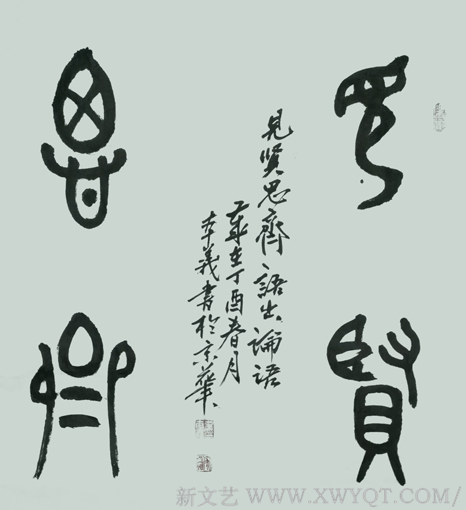 見賢
見賢思齊語出論語
歲在丁酉春月
義書於京華
思齊
新文艺 WWW.XWYQT.COM/